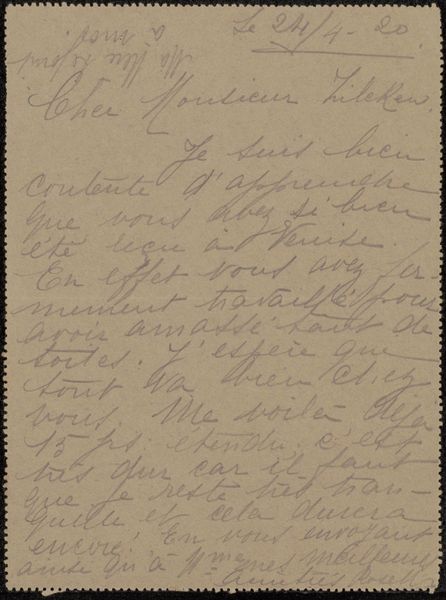 Le 24/4-20.
Ma mère se joint
à moi.
Cher Monsieur Zilcken.
Je suis bien
contente d'apprendre
que vous avez si bien
été reçu à Venise.
En effet vous avez fer-
mement travaillé pour
avoir amassé tant de
toiles. J'espère que
tout va bien chez
vous. Me voilà déjà
15 jrs. étendu c'est
très dur car il faut
que je reste très tran-
quille et cela durera
encore! En vous envoyant
ainsi qu'à Mme mes meilleurs
amitiés